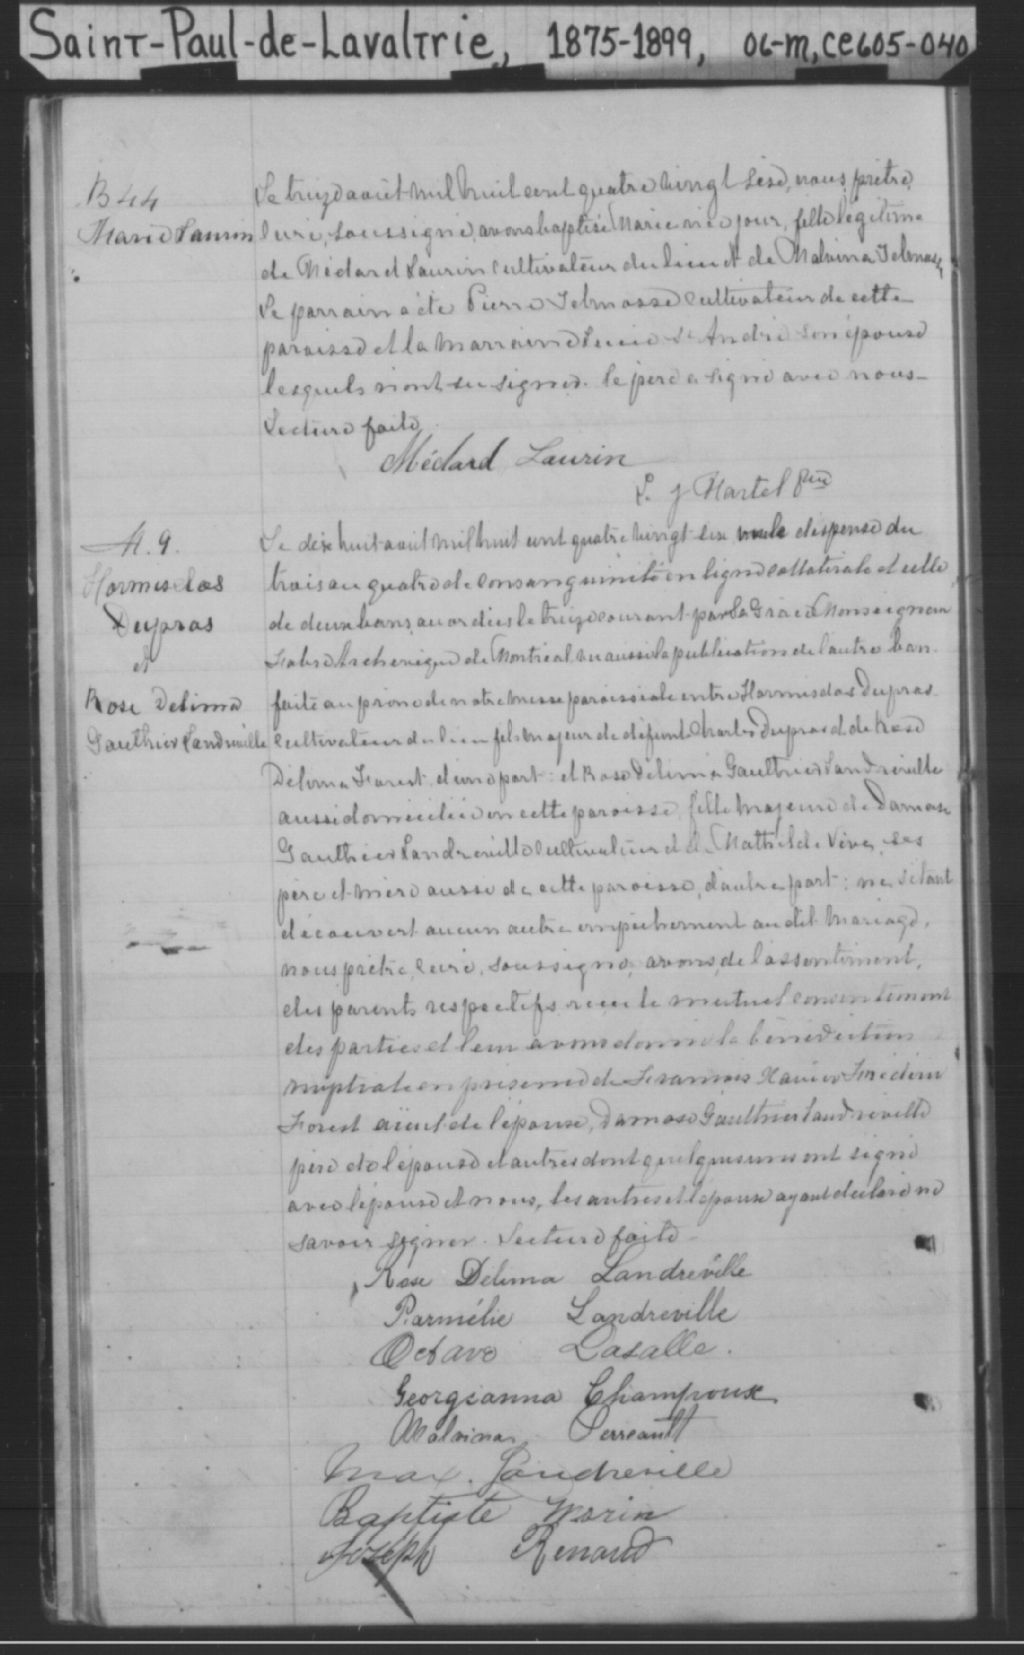 Saint-Paul-de-Lavaltrie, 1875-1899, 06-M, CE605-040
B 44
Marie Laurin
Le treize aout mil huit cent quatre vingt seize, nous, prêtre,
curé, soussigné, avons baptisé Marie née ce jour, fille légitime
de Médard Laurin cultivateur du lieu et de Malvina
Le parrain a été Pierre cultivateur de cette
paroisse et la marraine St André son épouse
lesquels n'ont su signer. le père a signé avec nous
Lecture faite
Médard Laurin
L. J Martel Ptre
M. 9.
Hormisdas
Dupras
et
Rose Delima
Gauthier Landreville
Le dix huit aout mil huit cent quatre vingt seize vu la dispense du
trois au quatre de consanguinité en ligne collatérale et celle
de deux bans, accordées le treize courant par Sa Grace Monseigneur
Fabre Archevêque de Montréal vu aussi la publication de l'autre ban
faite au prone de notre messe paroissiale entre Hormisdas Dupras
cultivateur du lieu fils majeur de défunt Charles Dupras et de Rose
Délima Forest d'une part: et Rose Délima Gaulthier Landreville
aussi domiciliée en cette paroisse, fille majeure de Damase
Gaulthier Landreville cultivateur et de Mathilde ses
père et mère aussi de cette paroisse, d'autre part: ne s'étant
découvert aucun autre empêchement au dit mariage,
nous, prêtre, curé, soussigné, avons, de l'assentiment,
des parents respectifs reçu le mutuel consentement
des parties et leur avons donné la bénédiction
nuptiale en présence de Francois Xavier
Forest aieul de l'épouse, Damase Gaulthier Landreville
père de l'épouse et autres dont quelques uns ont signé
avec l'épouse et nous, les autres et l'époux ayant déclaré ne
savoir signer. Lecture faite
Rose Délima Landreville
Parmélie Landreville
Octave Lasalle.
Georgianna Champoux
Malvina Perreault
Max. Landreville
Baptiste Morin
Joseph Renaud